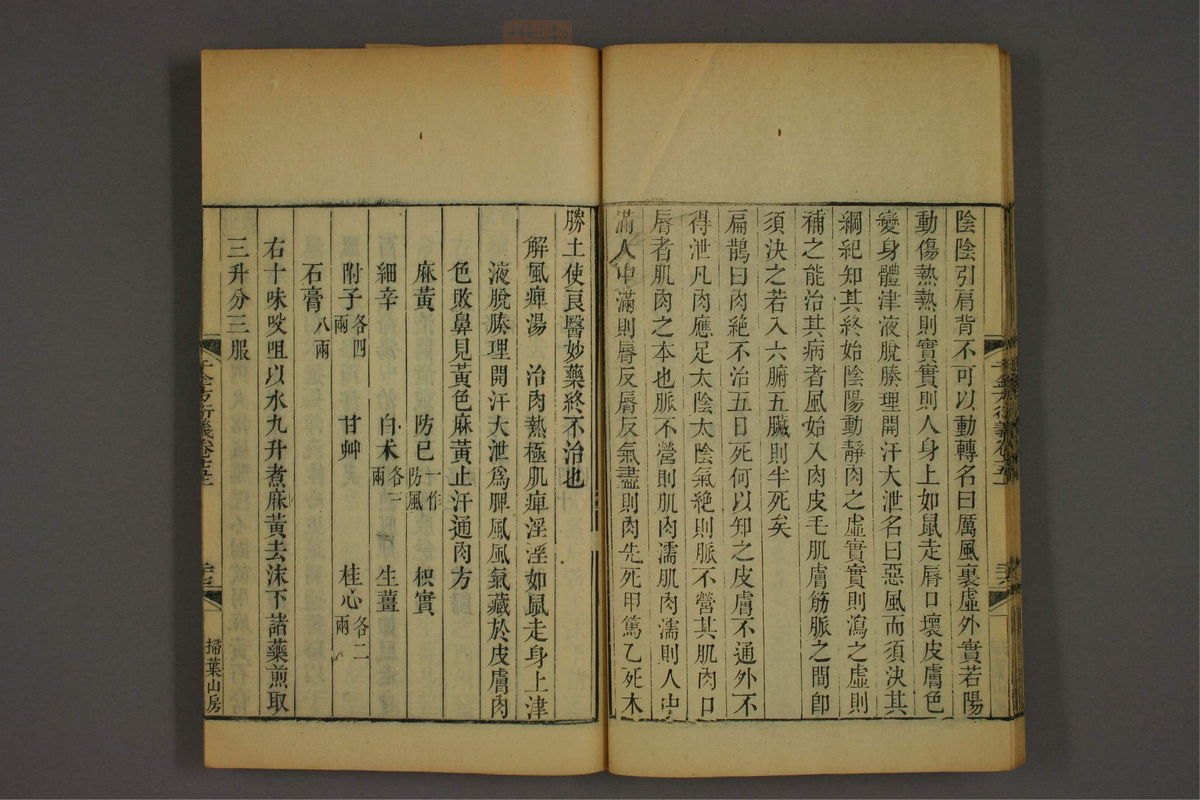 陰陰引肩背不可以動轉名曰厲風裏虛外實若陽
動傷熱熱則實實則人身上如鼠走脣口壞皮膚色
變身體津液脫腠理開汗大泄名曰惡風而須決其
綱紀知其終始陰陽動靜肉之虛實實則瀉之虛則
補之能治其病者風始入肉皮毛肌膚筋脈之間卽
須決之若入六腑五臟則半死矣
扁鵲曰肉絶不治五日死何以知之皮膚不通外不
得泄凡肉應足太陰太陰氣絶則脈不營其肌肉口
脣者肌肉之本也脈不營則肌肉濡肌肉濡則人中
滿人中滿則脣反脣反氣盡則肉先死甲篤乙死木
勝土使良醫妙藥終不治也
解風痺湯 治肉熱極肌痺淫淫如鼠走身上津
液脫腠理開汗大泄爲脾風風氣藏於皮膚肉
色敗鼻見黃色麻黃止汗通肉方
麻黃 防巳一作防風 枳實
細辛 白朮各三兩 生薑
附子各四兩 甘艸 桂心各二兩
石膏八兩
右十味㕮咀以水九升煮麻黃去沫下諸藥煎取
三升分三服
千金方衍義卷十五
掃葉山房